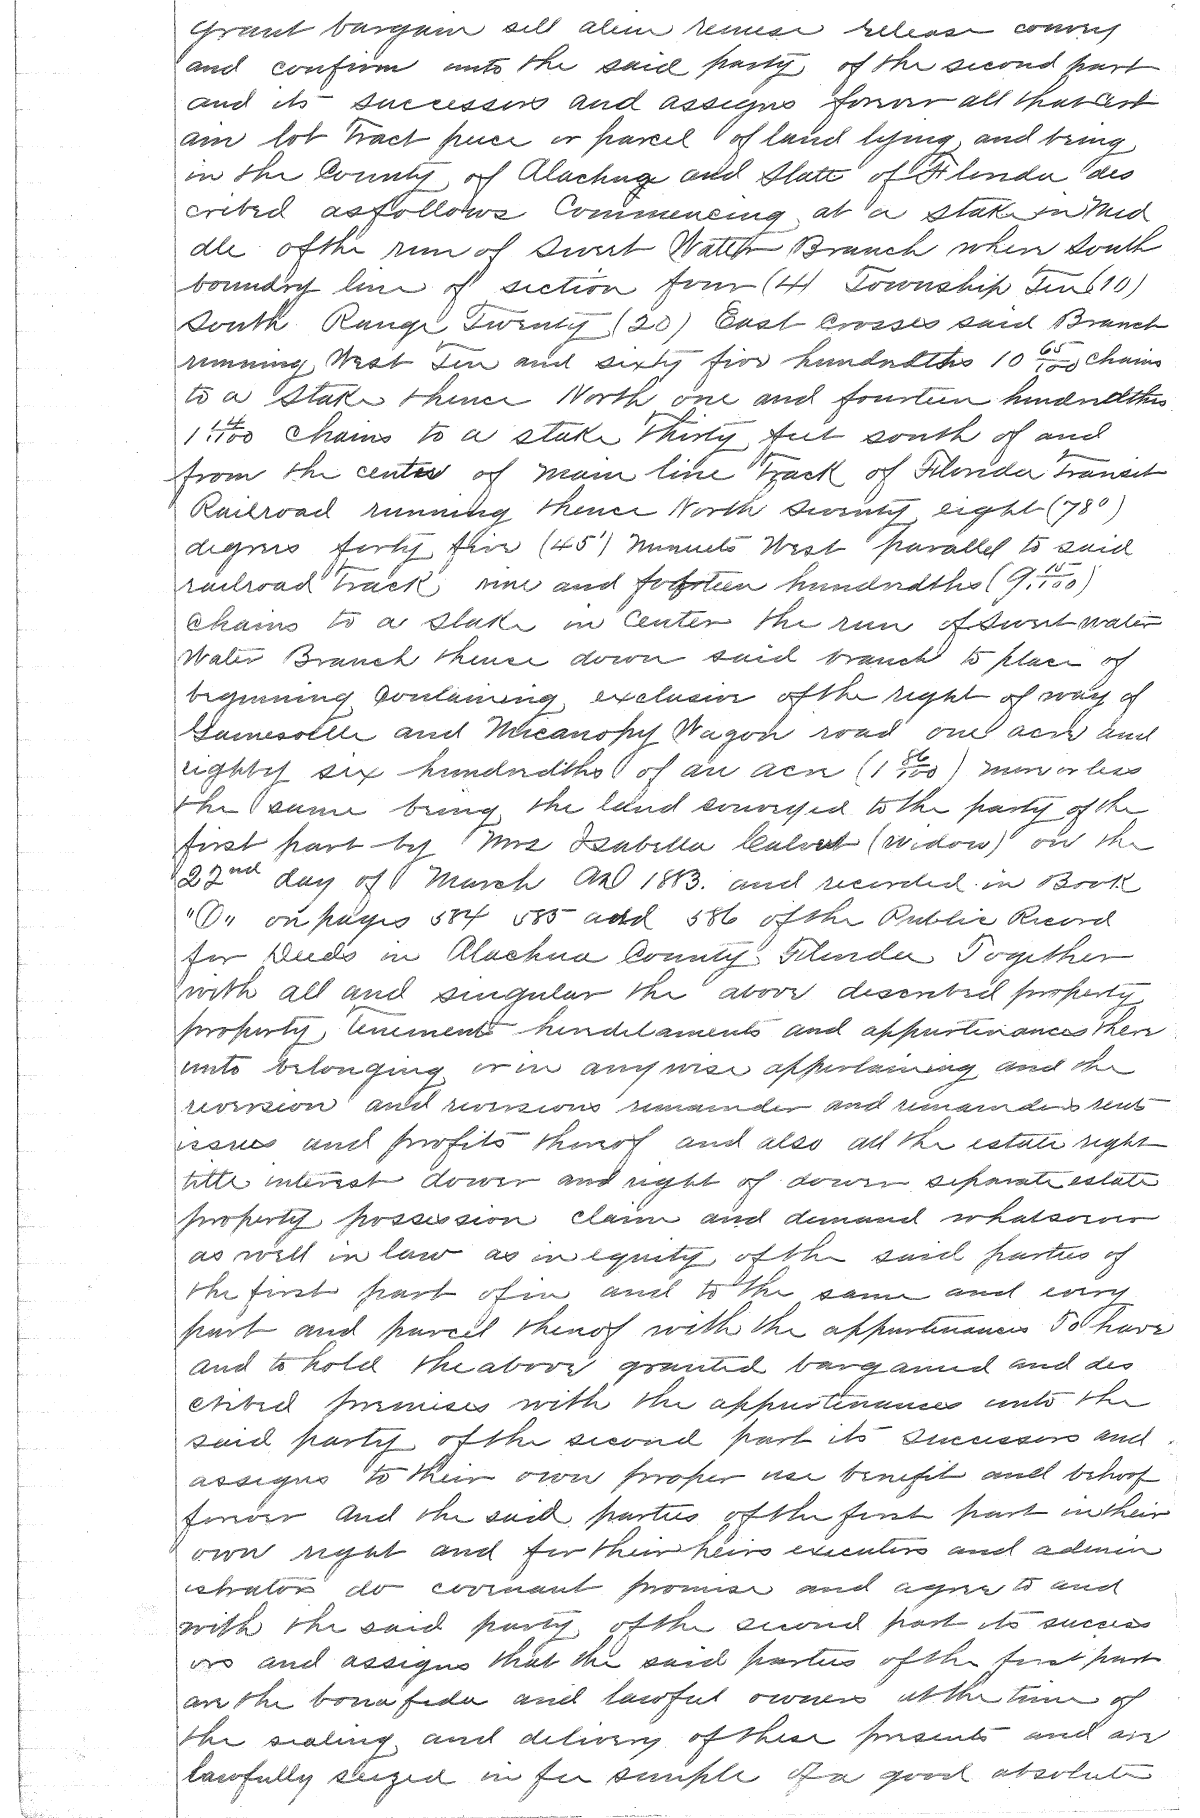 grant bargain sell alien remise release convey
and confirm unto the said party of the second part
and its successors and assigns forever all that cert
ain lot tract piece or parcel of land lying and being
in the County of Alachua and State of Florida des
cribed as follows Commencing at a stake in Mid
dle of the run of Sweet Water Branch where South
boundry line of section four (4) Township Ten (10)
South Range Twenty (20) East crosses said Branch
running West Ten and sixty five hundredths 10 65/100 chains
to a stake thence North one and fourteen hundredths
1 14/100 chains to a stake thirty feet south of and
from the center of main line track of Florida Transit
Railroad running thence North seventy eight (78°)
degrees forty five (45') minuets West parallel to said
railroad track nine and hundredths (9. 15/100)
chains to a stake in center the run of Sweet water
Water Branch thence down said branch to place of
beginning containing exclusive of the right of way of
Gainesville and Micanopy Wagon road one acre and
eighty six hundredths of an acre (1 86/100) more or less
the same being the land conveyed to the party of the
first part by Mrs Isabella Calvert (widow) on the
22nd day of March AD 1883. and recorded in Book
"O" on pages 584 585 and 586 of the Public Record
for Deeds in Alachua County Florida Together
with all and singular the above described property
property tenements heredetaments and appurtenances there
unto belonging or in any wise appertaining and the
reversion and reversions remainder and remainders rents
issues and profits thereof and also all the estate right
title interest dower and right of dower separate estate
property possession claim and demand whatsoever
as well in law as in equity of the said parties of
the first part of in and to the same and every
part and parcel thereof with the appurtenances To have
and to hold the above granted bargained and des
cribed premises with the appurtenances unto the
said party of the second part its successors and
assigns to their own proper use benefit and behoof
forever And the said parties of the first part in their
own right and for their heirs executors and admin
istrators do covenant promise and agree to and
with the said party of the second part its success
ors and assigns that the said parties of the first part
are the bona fide and lawful owners at the time of
the sealing and delivery of these presents and are
lawfully seized in fee simple of a good absolute